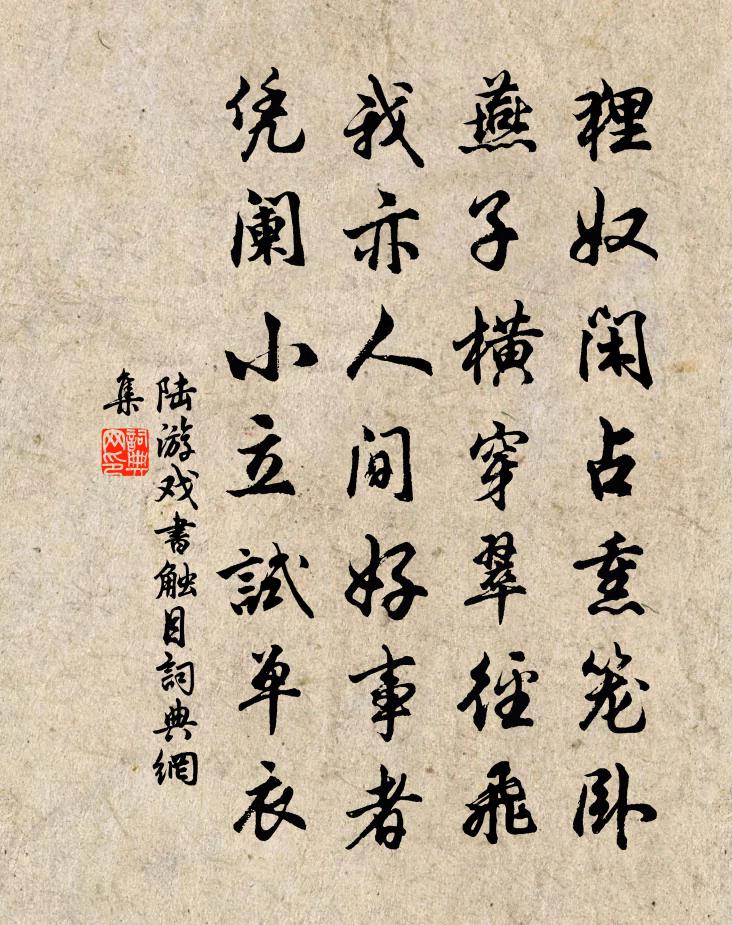 狸奴闲占熏笼卧
燕子横穿翠径飞
我亦人间好事者
凭阑小立试单衣
陆游戏书触目詞典網
集
詞典
网印